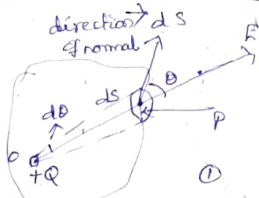 direction → dS
of normal
E
dS
θ
dθ
P
O
+Q
①